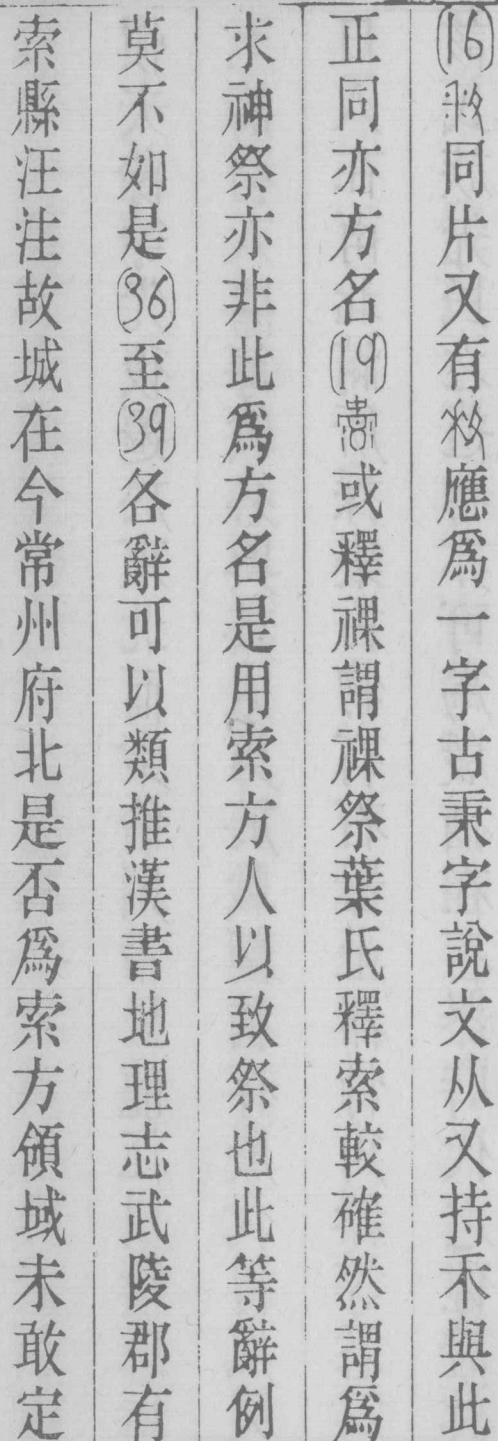 (16)同片又有應爲一字古秉字說文从又持禾與此
正同亦方名(19)或釋祼謂祼祭葉氏釋索較確然謂爲
求神祭亦非此爲方名是用索方人以致祭也此等辭例
莫不如是(36)至(39)各辭可以類推漢書地理志武陵郡有
索縣汪注故城在今常州府北是否爲索方領域未敢定